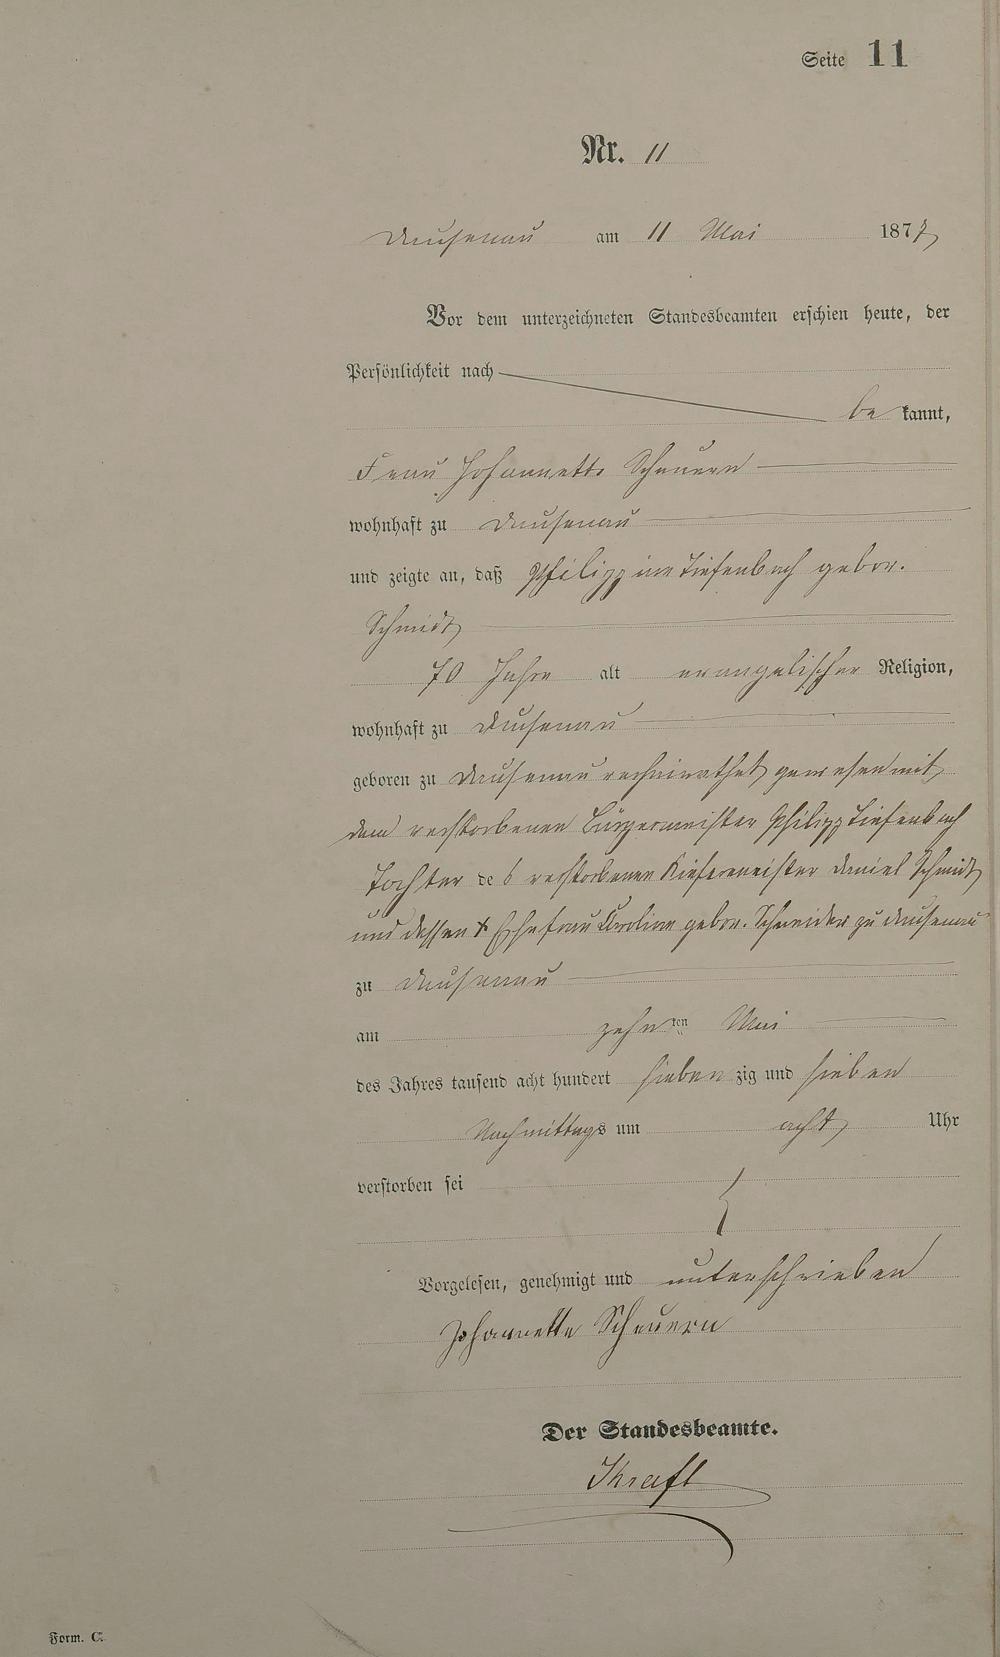 Seite 11
Nr. 11
Dausenau am 11 Mai 1877
Vor dem unterzeichneten Standesbeamten erschien heute, der
Persönlichkeit nach
be kannt,
Frau Johannette Scheuern
wohnhaft zu Dausenau
und zeigte an, daß Philippine Tiefenbach gebor.
Schmidt
70 Jahre alt evangelischer Religion,
wohnhaft zu Dausenau
geboren zu Dausenau verheirathet gewesen mit
dem verstorbenen Bürgermeister Philipp Tiefenbach
Tochter des verstorbenen Kiefermeister Daniel Schmidt
und dessen Ehefrau Karoline gebor. Schneider zu Dausenau
zu Dausenau
am zehnten Mai
des Jahres tausend acht hundert siebenzig und sieben
Nachmittags um acht Uhr
verstorben sei
Vorgelesen, genehmigt und unterschrieben
Johannette Scheuern
Der Standesbeamte.
Kraft
Form. C.